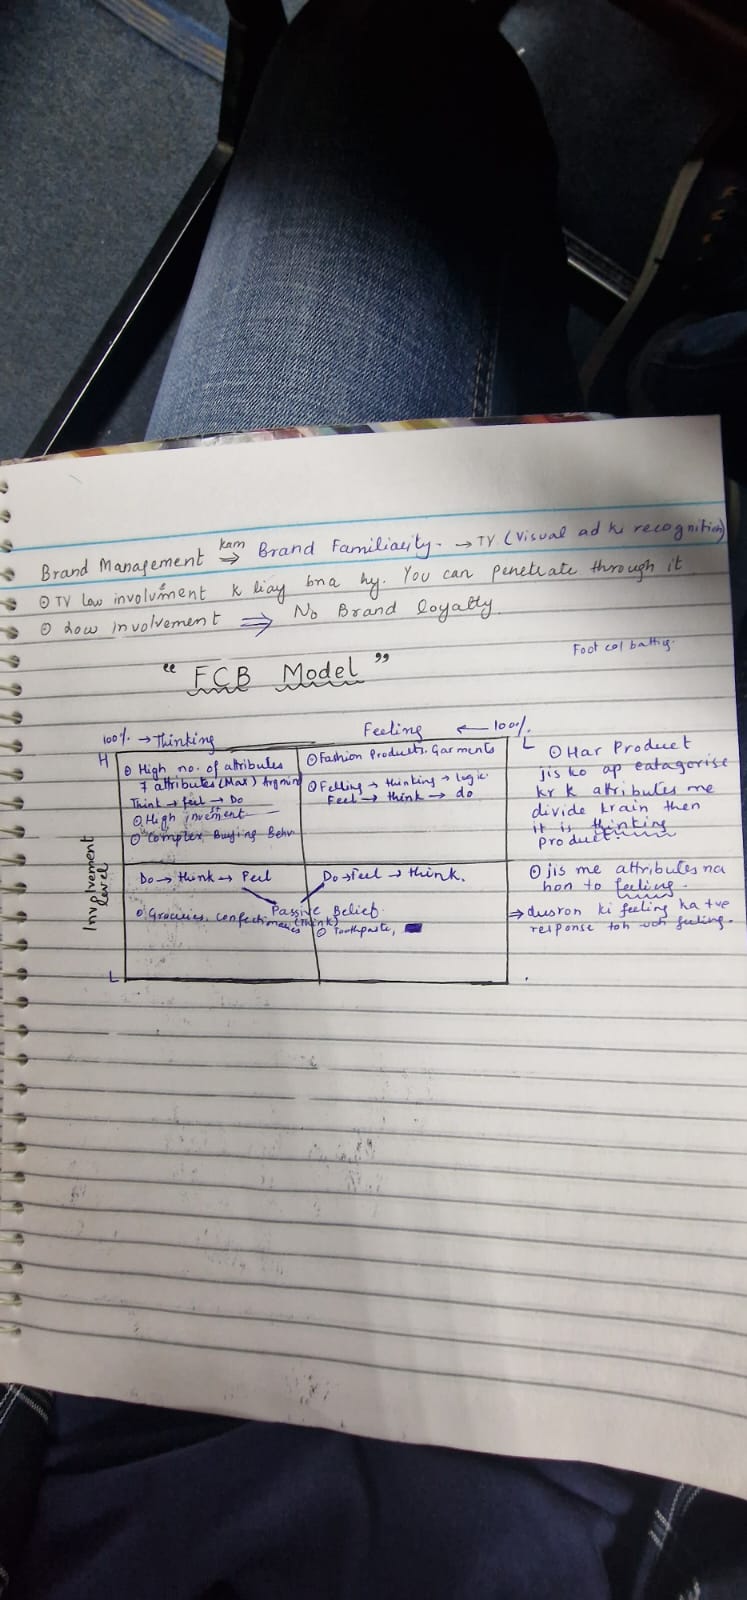 Brand Management kam ⇒ Brand Familiarity. → TV (Visual ad ki recognition)
⊙ TV low involvment k liay bna hy. You can penetrate through it
⊙ Low involvement ⇒ No Brand loyalty.
Foot col battig.
"FCB Model"
100% → Thinking
Feeling ← 100%
H
L
Involvement level
⊙ High no. of attributes
7 attributes (Max)
Think → feel → Do
⊙ High
⊙ Complex Buying Behv
⊙ Fashion Products. Garments
⊙ Felling → thinking → logic.
Feel → think → do
Do → think → Feel
⊙ Groceries, Confectionaries
Do → Feel → think.
Passive Belief.
(think)
⊙ Toothpaste,
L
⊙ Har Product
jis ko ap catagorise
kr k attributes me
divide krain then
it is thinking
product.
⊙ jis me attributes na
hon to feeling.
⇒ dusron ki feeling ka
response toh woh feeling.